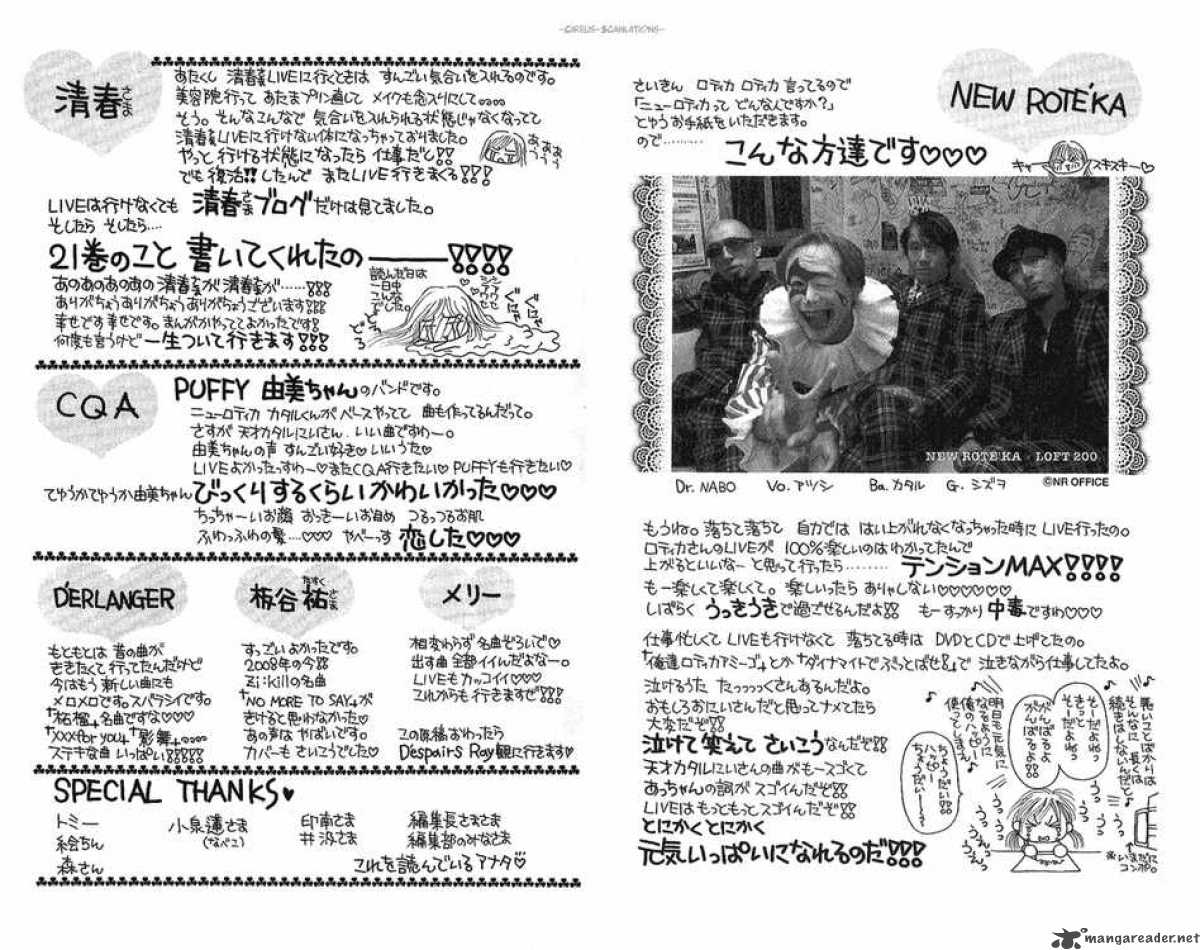 -CIRCUS-SCANLATIONS-
さいきん ロティカ ロティカ 言ってるので
「ニューロティカって どんな人ですか?」
とゆうお手紙をいただきます。
ので………
NEW ROTE'KA
こんな方達です♡♡♡
キャー
スキスキー♡
NEW ROTE'KA - LOFT 200
Dr. NABO Vo. アツシ Ba. カタル G. シズヲ
©NR OFFICE
もうね。落ちて落ちて 自力では はい上がれなくなっちゃった時に LIVE行ったの。
ロティカさんのLIVEが 100%楽しいのはわかってたんで
上がるといいなーと思って行ったら……… テンションMAX!!!!
もー楽しくて楽しくて。楽しいったら ありゃしない♡♡♡♡♡♡
しばらく うっきうきで過ごせるんだよ!! もーすっかり 中毒ですわ♡♡♡
仕事忙しくて LIVEも行けなくて 落ちてる時は DVDとCDで上げてたの。
「俺達ロティカアミーゴ」とか「ダイナマイトでぶっとばせ!!」で 泣きながら仕事してたよ。
泣けるうた たっっっっくさんあるんだよ。
おもしろおにいさんだと思ってナメてたら
大変だぞ!!
泣けて笑えて さいこうなんだぞ!!
天才カタルにいさんの曲がもースゴくて
あっちゃんの詞が スゴイんだぞ!!
LIVEはもっともっとスゴイんだぞ!!
とにかくとにかく
元気いっぱいになれるのだ!!!
悪いことばかりは
そんなに長くは
続きはしないんだと♪
そーだよねっ
きっと
そーだよねっ
がんばるよ
がんばるよ!!
明日も元気に
なるように
俺のハッピー
使ってしまえ♪
ちょうだい!!!
ハッピー
ちょうだいー
うっ
うっ
うっ
うえっ
※いまだに
コンポ。
清春さま
あたくし 清春さまLIVEに行くときは すんごい気合いを入れるのです。
美容院行って あたまプリン直して メイクも念入りにして。。。。
そう。そんなこんなで 気合いを入れられる状態じゃなくなってて
清春さまLIVEに行けない体になっちゃっておりました。
やっと行ける状態になったら 仕事だと!!
でも復活!!したんで またLIVE行きまくる!!!
LIVEは行けなくても 清春さまブログだけは見てました。
そしたら そしたら….
21巻のこと 書いてくれたの―――!!!!
あのあのあのあの 清春さまが清春さまが……!!!
ありがちょうありがちょうありがちょうございます!!!
幸せです幸せです。まんがかやっててよかったです!
何度も言うけど 一生ついて行きます!!!
読んだ日は
一日中
こんな
でした。
シアワセ
CQA
PUFFY 由美ちゃんのバンドです。
ニューロティカ カタルくんが ベースやってて 曲も作ってるんだって。
さすが 天才カタルにいさん。いい曲ですわー。
由美ちゃんの声 すんごい好き♡いいうた♡
LIVEよかったっすわー♡またCQA行きたい♡PUFFYも行きたい♡
でゆうかでゆうか由美ちゃん びっくりするくらいかわいかった♡♡♡
ちっちゃーいお顔 おっきーいお目め つるっつるお肌
ふわっふわの髪….♡♡♡ やべーっす 恋した♡♡♡
D'ERLANGER
もともとは 昔の曲が
ききたくて行ってたんだけど
今はもう新しい曲にも
メロメロです。スバラシイです。
「柘榴」名曲ですな♡♡♡
「XXX for you」「影舞」。。。。
ステキな曲 いっぱい!!!!!
板谷祐さま
たすく
すっごい よかったです。
2008年の今!!
Zi:killの名曲
「NO MORE TO SAY」が
きけると思わなかった♡
あの声は やばいです。
カバーも さいこうでした♡
メリー
相変わらず 名曲ぞろいで♡
出す曲 全部イイんだよなー。
LIVEも カッコイイ♡♡♡
これからも行きますぜ!!!
この原稿おわったら
D'espairs Ray観に行きます♡
SPECIAL THANKS♥
トミー
絵ちん
森さん
小泉蓮さま
(なべこ)
印南さま
井汲さま
編集長さまさま
編集部のみなさま
これを読んでいるアナタ♡
mangareader.net